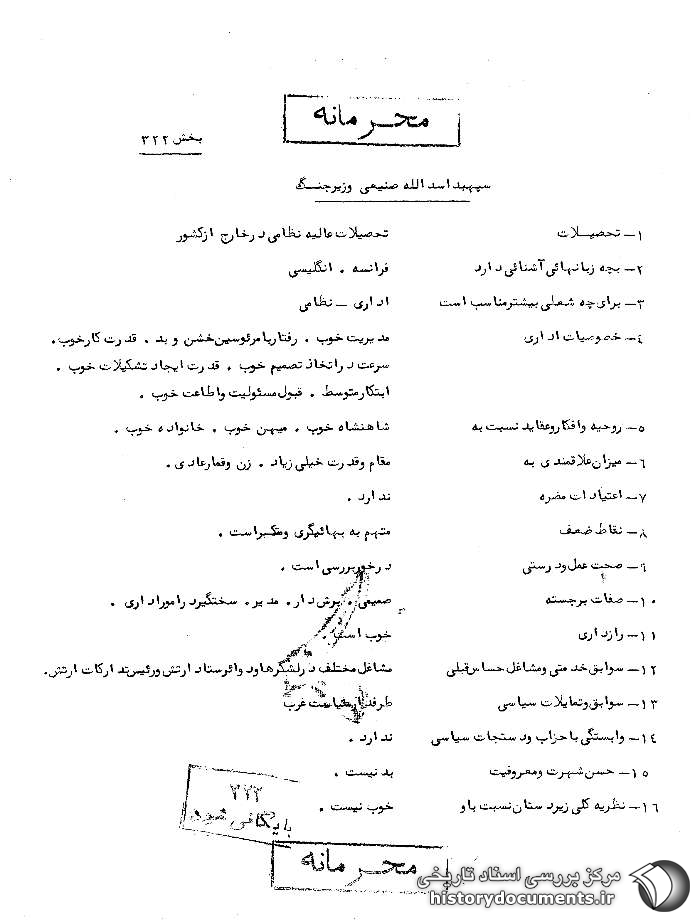 محرمانه
بخش ۳۲۲
سپهبد اسدالله صنیعی وزیرجنگ
۱ـ تحصیلات تحصیلات عالیه نظامی در خارج ازکشور
۲ـ بچه زبانهائی آشنائی دارد فرانسه . انگلیسی
۳ـ برای چه شغلی بیشتر مناسب است اداری ـ نظامی
٤ـ خصوصیات اداری مدیریت خوب . رفتار با مرئوسین خشن و بد . قدرت کار خوب .
سرعت در اتخاذ تصمیم خوب . قدرت ایجاد تشکیلات خوب .
ابتکار متوسط . قبول مسئولیت و اطاعت خوب .
۵ـ روحیه و افکار و عقاید نسبت به شاهنشاه خوب . میهن خوب . خانواده خوب .
٦ـ میزان علاقمندی به مقام و قدرت خیلی زیاد . زن و قمار عادی .
۷ـ اعتیادات مضره ندارد .
۸ـ نقاط ضعف متهم به بهائیگری و متکبر است .
۹ـ صحت عمل و درستی در خور بررسی است .
۱۰ـ صفات برجسته صمیمی . برش دار . مدیر . سختگیر در امور اداری .
۱۱ـ رازداری خوب است .
۱۲ـ سوابق خدمتی و مشاغل حساس قبلی مشاغل مختلف در لشگرها و دوائر ستاد ارتش و رئیس تدارکات ارتش.
۱۳ـ سوابق و تمایلات سیاسی طرفدار سیاست غرب
۱٤ـ وابستگی با حزاب و دستجات سیاسی ندارد .
۱۵ـ حسن شهرت و معروفیت بد نیست .
۱٦ـ نظریه کلی زیردستان نسبت باو خوب نیست .
۳۲۲
بایگانی شود
محرمانه
مرکز بررسی اسناد تاریخی
historydocuments.ir